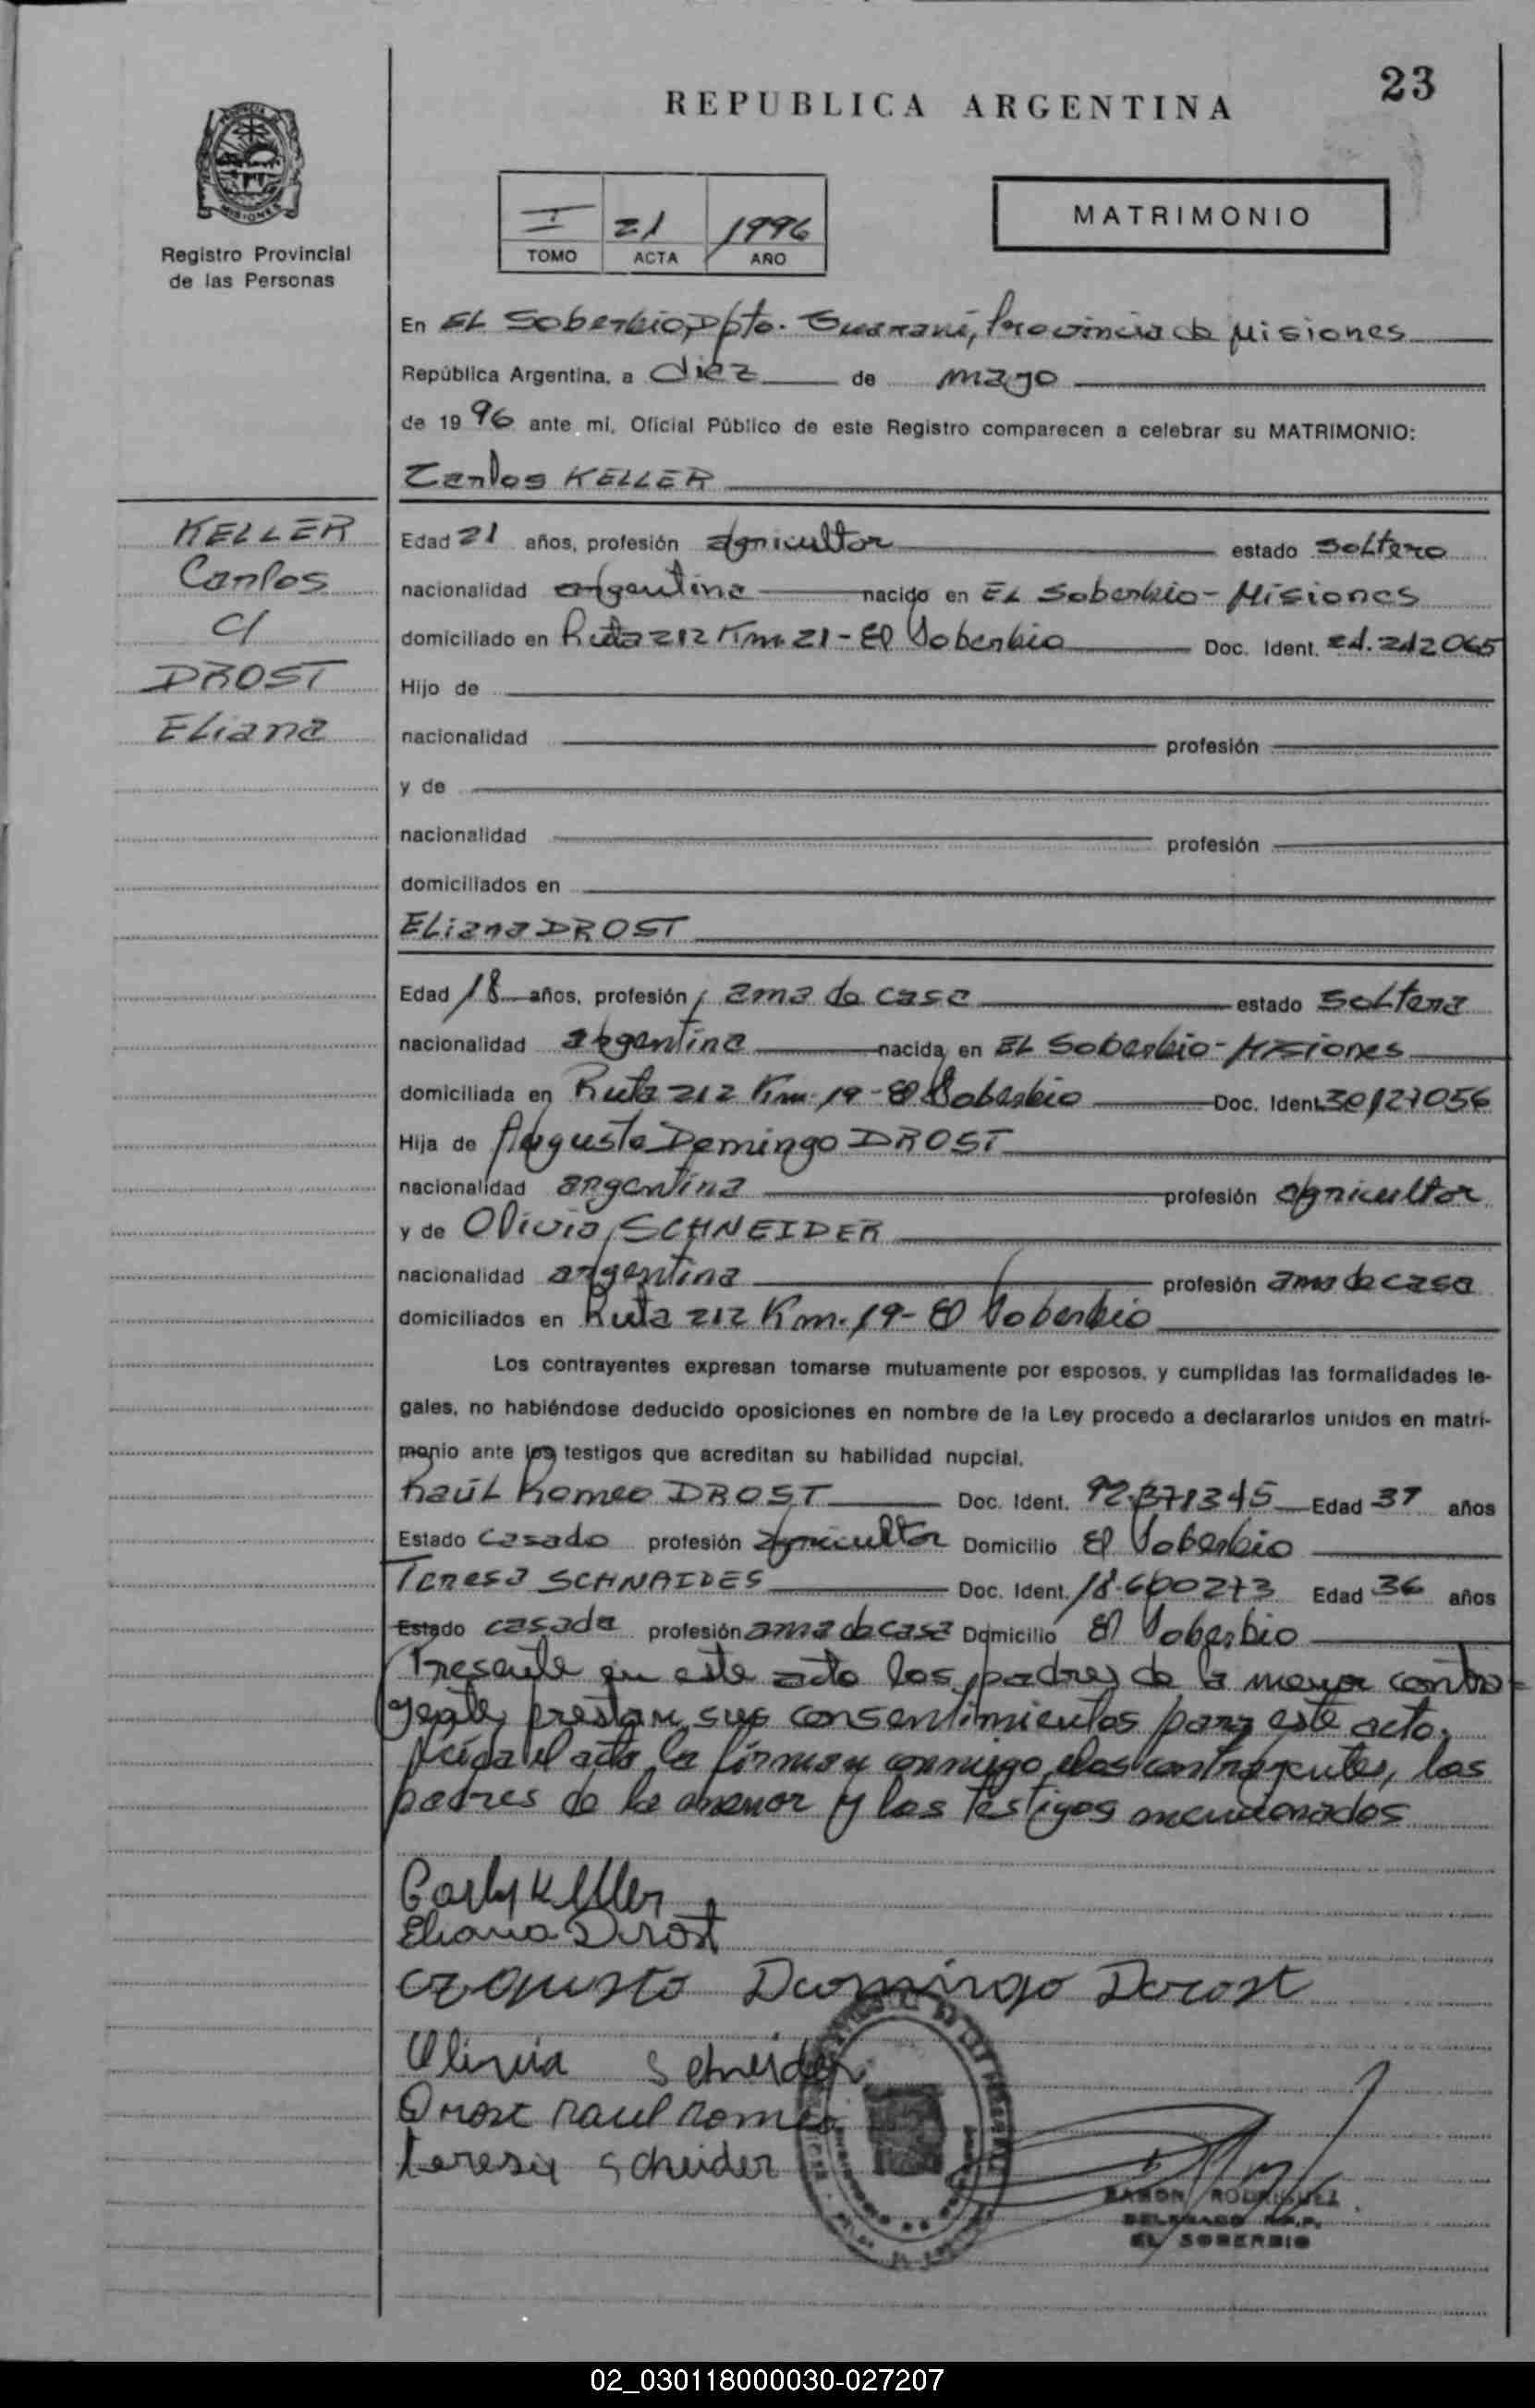 23
REPUBLICA ARGENTINA
PROVINCIA
MISIONES
Registro Provincial
de las Personas
I 21 1996
TOMO ACTA AÑO
MATRIMONIO
En EL Soberbio, Dpto. Guaraní, Provincia de Misiones
República Argentina, a diez de mayo
de 1996 ante mi, Oficial Público de este Registro comparecen a celebrar su MATRIMONIO:
Carlos KELLER
KELLER
Carlos
C/
DROST
Eliana
Edad 21 años, profesión agricultor estado soltero
nacionalidad argentina nacido en EL Soberbio - Misiones
domiciliado en Ruta 212 Km 21 - El Soberbio Doc. Ident. 24.212065
Hijo de
nacionalidad profesión
y de
nacionalidad profesión
domiciliados en
Eliana DROST
Edad 18 años, profesión ama de casa estado soltera
nacionalidad argentina nacida en EL Soberbio - Misiones
domiciliada en Ruta 212 Km. 19 - El Soberbio Doc. Ident. 30127056
Hija de Augusto Domingo DROST
nacionalidad argentina profesión agricultor
y de Olivia SCHNEIDER
nacionalidad argentina profesión ama de casa
domiciliados en Ruta 212 Km. 19 - El Soberbio
Los contrayentes expresan tomarse mutuamente por esposos, y cumplidas las formalidades le-
gales, no habiéndose deducido oposiciones en nombre de la Ley procedo a declararlos unidos en matri-
monio ante los testigos que acreditan su habilidad nupcial.
Raúl Romeo DROST Doc. Ident. 92.371345 Edad 37 años
Estado casado profesión agricultor Domicilio El Soberbio
Teresa SCHNAIDES Doc. Ident. 18.600273 Edad 36 años
Estado casada profesión ama de casa Domicilio El Soberbio
Presente en este acto los padres de la menor contra-
yente, prestan sus consentimientos para este acto.
Leída el acta la firman conmigo los contrayentes, los
padres de la menor y los testigos mencionados
Carlos Keller
Eliana Drost
Augusto Domingo Drost
Olivia Schneider
Drost Raul Romeo
teresa Schuider
RAMON RODRIGUEZ
DELEGADO R.P.P.
EL SOBERBIO
02_030118000030-027207